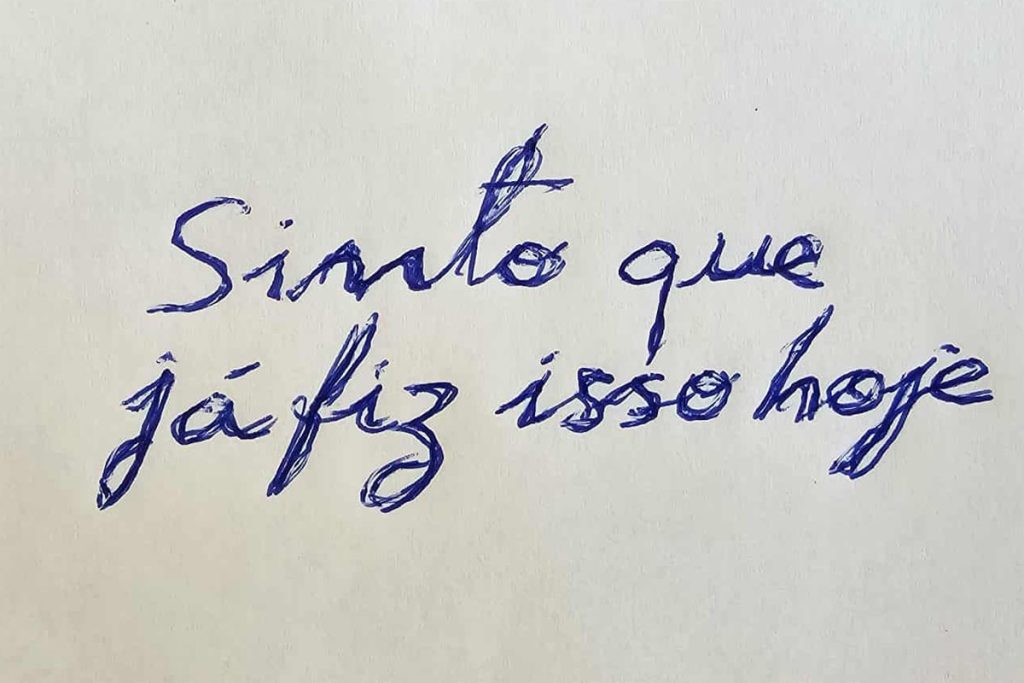 Sinto que
já fiz isso hoje